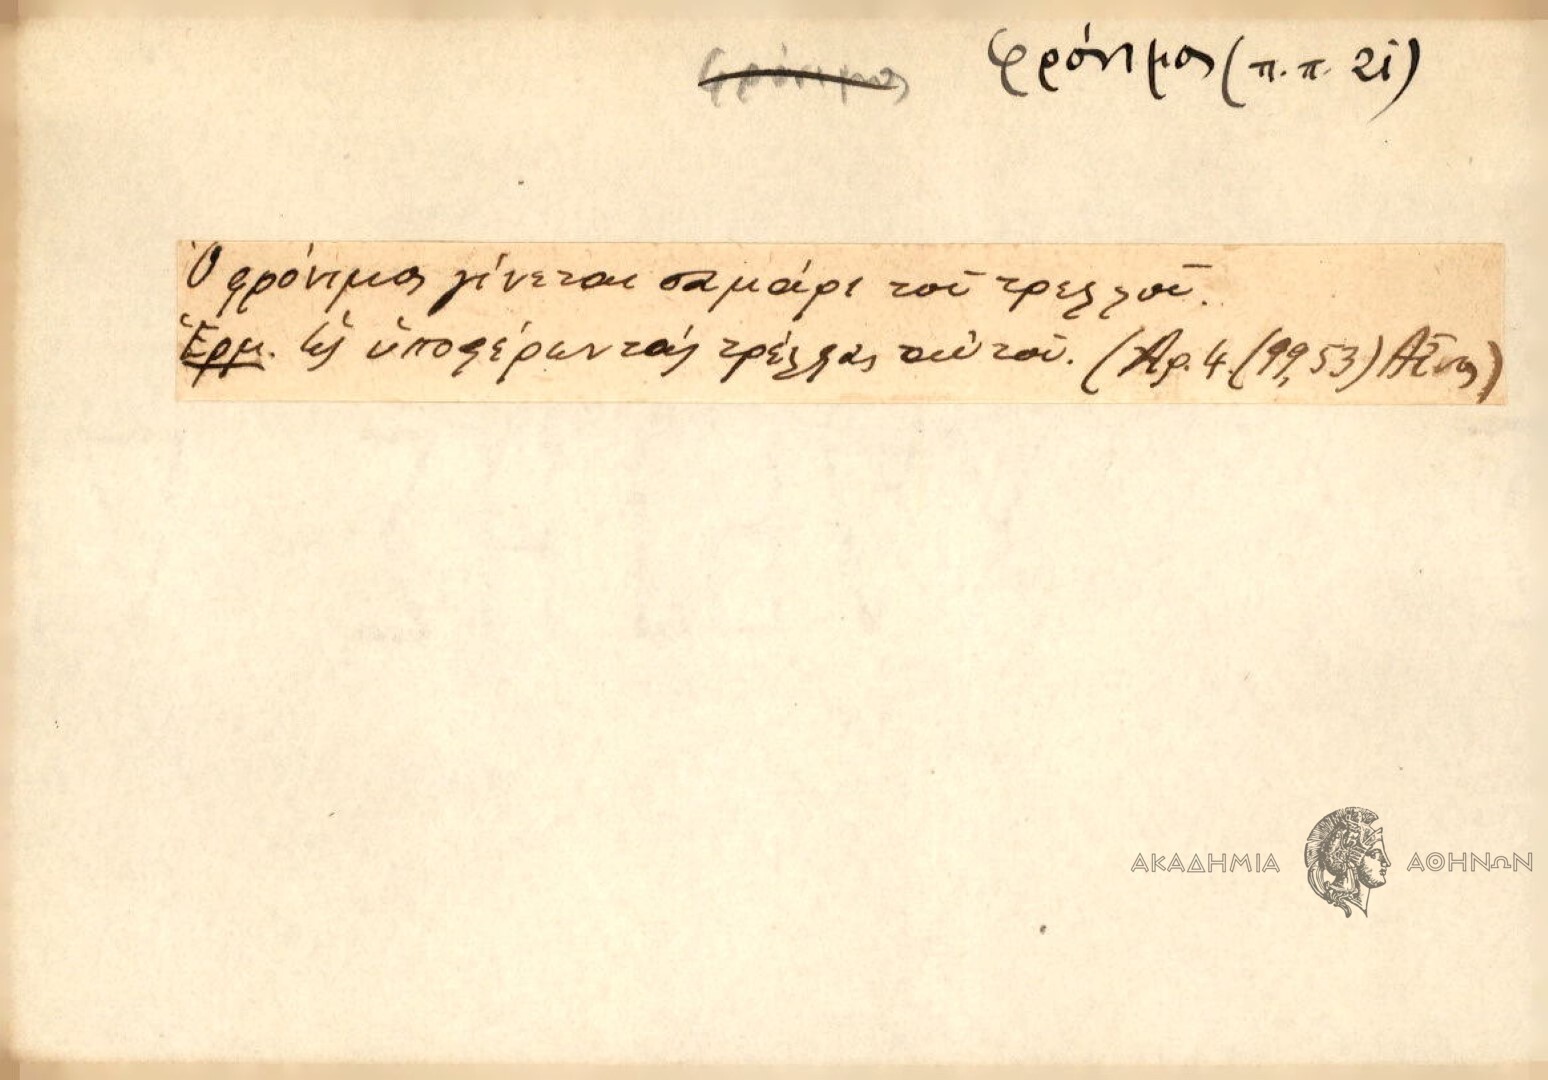 φρόνιμος φρόνιμος (π.π. 21)
Ὁ φρόνιμος γίνεται σαμάρι τοῦ τρελλοῦ.
Ἑρμ. Ὡς ὑποφέρων τάς τρέλλας αὐτοῦ. (Ἀρ. 4 (99, 53) Αἶνος)
ΑΚΑΔΗΜΙΑ ΑΘΗΝΩΝ